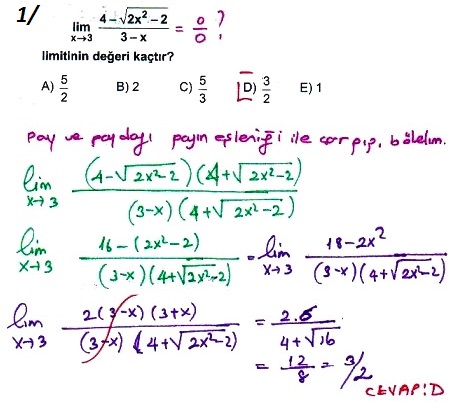 1/ lim x→3 4-√2x²-2 / 3-x = 0/0 ?
limitinin değeri kaçtır?
A) 5/2 B) 2 C) 5/3 D) 3/2 E) 1
Pay ve paydayı payın eşleniği ile çarpıp, bölelim.
lim x→3 (4-√2x²-2)(4+√2x²-2) / (3-x)(4+√2x²-2)
lim x→3 16-(2x²-2) / (3-x)(4+√2x²-2) = lim x→3 18-2x² / (3-x)(4+√2x²-2)
lim x→3 2(3-x)(3+x) / (3-x)(4+√2x²-2) = 2.6 / 4+√16
= 12/8 = 3/2
CEVAP:D